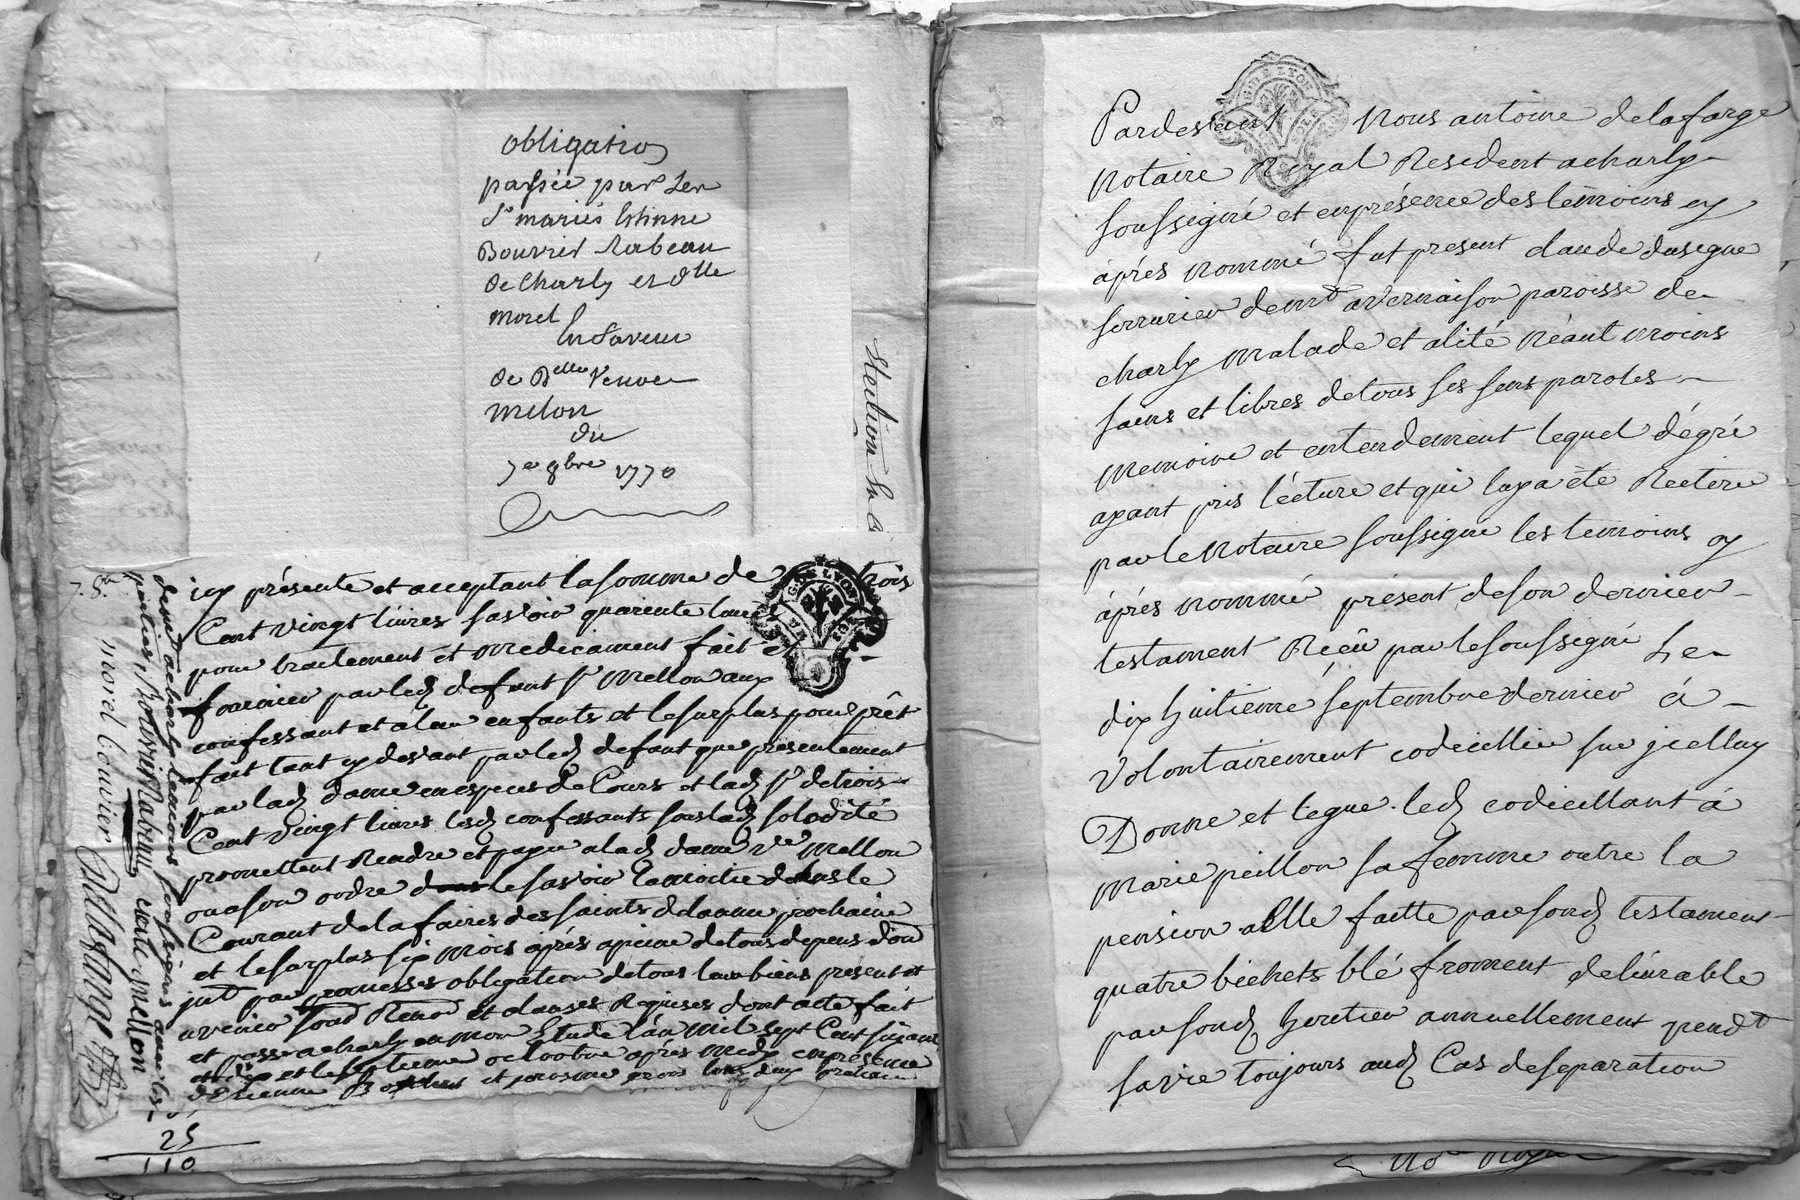 obligation
passée par Les
Sr mariés Etienne
Bouvier Rabeau
de Charly et dlle
morel
En faveur
de Delle Veuve
melon
du
7e 8bre 1770
Section
icy présente et acceptant la somme de trois
Cent vingt livres savoir quarente
pour traitement et medicament fait
fournier par led defunt sr Mellon aux
confessant et a leur enfants et le surplus pour prêt
fait tant cy devant par led defunt que presentement
par lad dame en especes de Cours et lad se de trois
Cent vingt livres lesd confessants sous lad solidité
promettent Rendre et payer a lad dame ve Mellon
ou a son ordre savoir la moitie dans le
Courant de la faires des saints de lannee prochaine
et le surplus six mois après a peine de tous depens
par promesses obligation de tous leur biens present et
avenir et clauses Requises dont acte fait
et passe a charly en mon Etude l'an mil sept Cent
et le septieme octoobre après midy en presence
de Etienne
7. 8.
demt a charly temoins soussignes avec les
parties, Bouvier Rabeau, verte mellon
morel bouvier
Delafarge
25
110
DE LYON
G. DE LYON
Pardevant Nous antoine delafarge
Notaire Royal Resident acharly
soussigné et en présence des temoins cy
après nommé fut present claude dusegne
serrurier demt avernaison paroisse de
charly malade et alité Néant moins
sains et libres de tous ses sens paroles
memoire et entendement lequel dégré
ayant pris lecture et qui luy a ete Reitere
par le Notaire soussigne les temoins cy
après nommé présent de son dernier
testament Reçu par le soussigné Le
dix huitieme septembre dernier à
volontairement codicillier sur jcelluy
Donne et legue led codicillant à
Marie peillon sa femme outre la
pension a Elle faitte par sond testament
quatre bichets blé froment delivrable
par sond heritier annuellement pendt
sa vie toujours aud Cas de separation